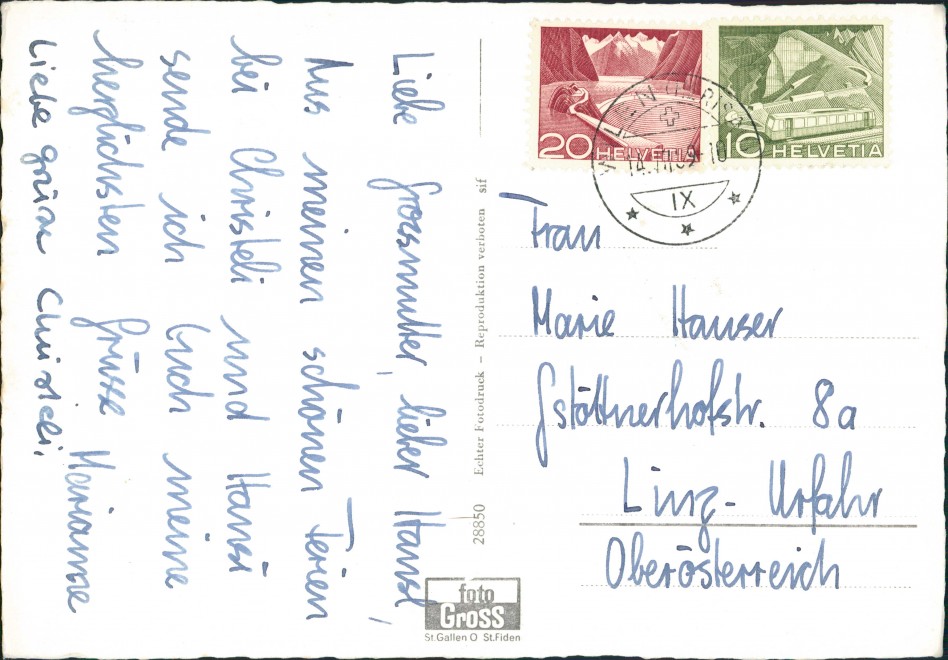 Liebe Grossmutter, lieber Hansl,
Aus meinen schönen Ferien
bei Christeli und Hansi
sende ich Euch meine
herzlichsten Grüsse Marianne
Liebe grüsse Christeli.
28850 Echter Fotodruck – Reproduktion verboten sif
20 HELVETIA
10 HELVETIA
IX
Frau
Marie Hauser
Gstöttnerhofstr. 8a
Linz-Urfahr
Oberösterreich
foto
Gross
St.Gallen O St.Fiden